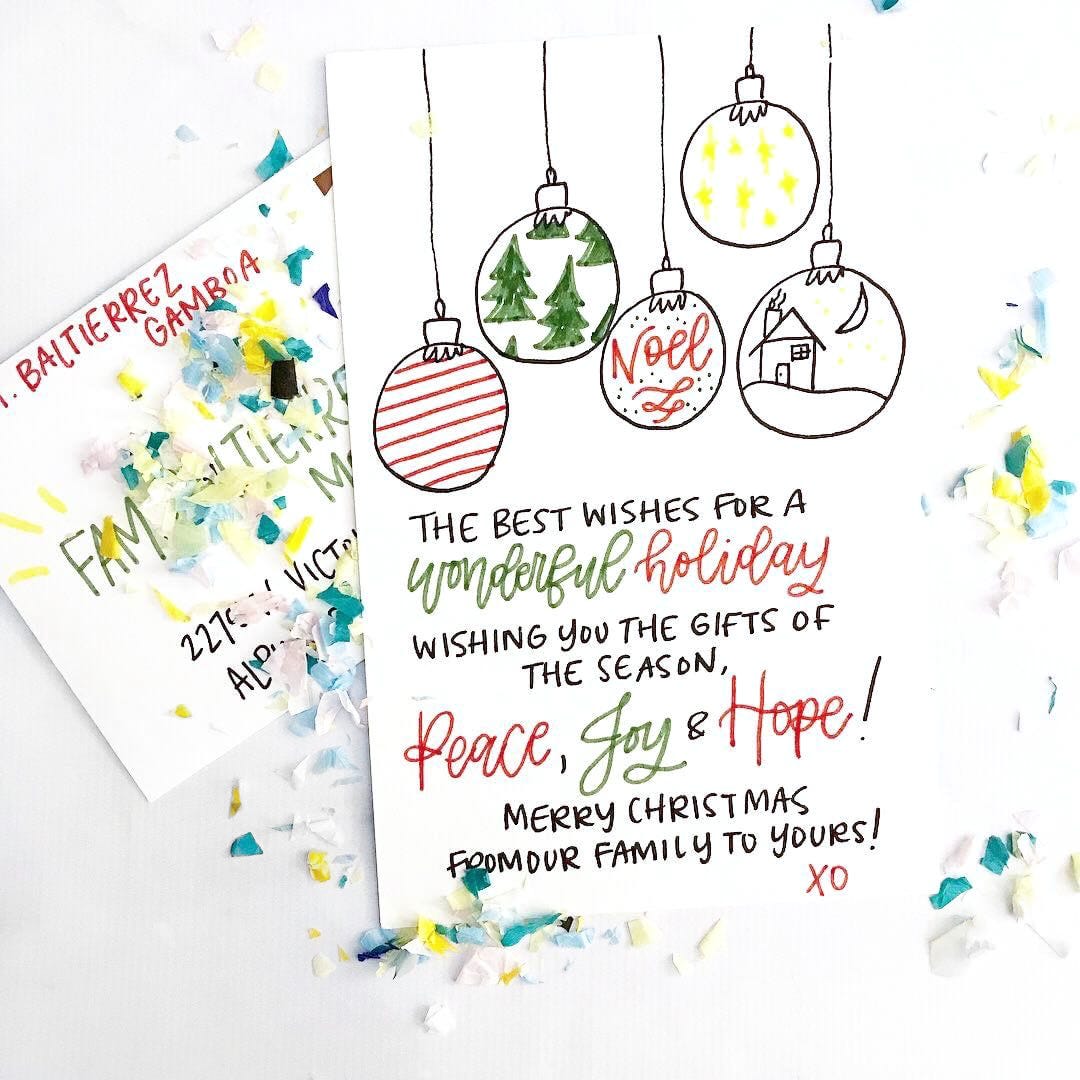 BALTIERREZ
GAMBOA
Noel
THE BEST WISHES FOR A
wonderful holiday
WISHING YOU THE GIFTS OF
THE SEASON,
Peace, Joy & Hope!
MERRY CHRISTMAS
FROM OUR FAMILY TO YOURS!
XO